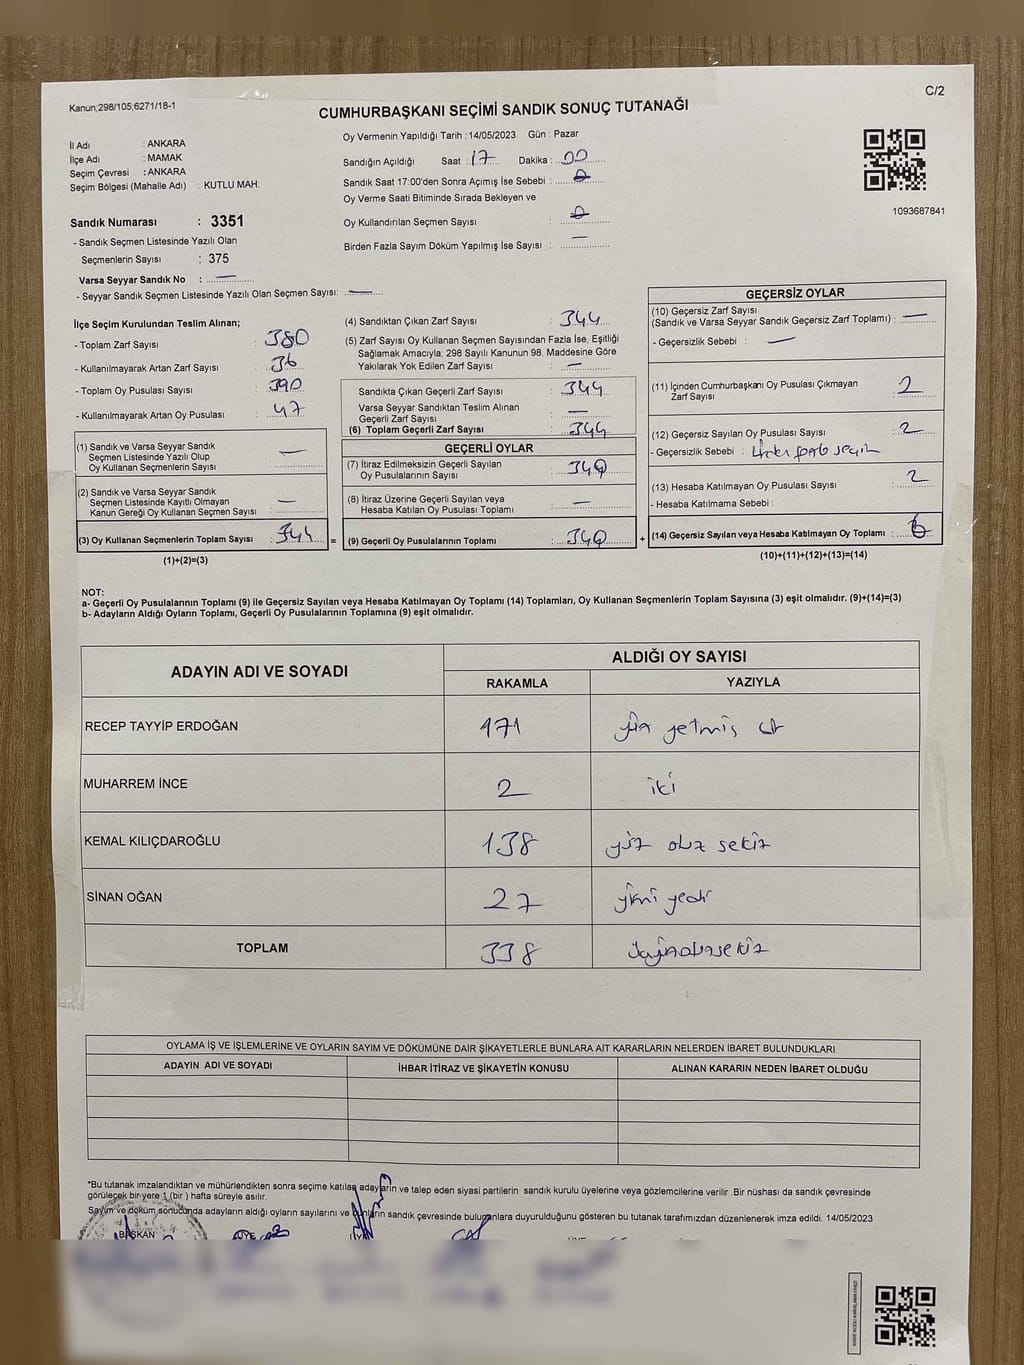 C/2
Kanun;298/105;6271/18-1
CUMHURBAŞKANI SEÇİMİ SANDIK SONUÇ TUTANAĞI
İl Adı : ANKARA
İlçe Adı : MAMAK
Seçim Çevresi : ANKARA
Seçim Bölgesi (Mahalle Adı) : KUTLU MAH.
Sandık Numarası : 3351
- Sandık Seçmen Listesinde Yazılı Olan
Seçmenlerin Sayısı : 375
Varsa Seyyar Sandık No : —
- Seyyar Sandık Seçmen Listesinde Yazılı Olan Seçmen Sayısı: —
Oy Vermenin Yapıldığı Tarih : 14/05/2023 Gün : Pazar
Sandığın Açıldığı Saat : 17 Dakika : 00
Sandık Saat 17:00'den Sonra Açımış İse Sebebi : 0
Oy Verme Saati Bitiminde Sırada Bekleyen ve
Oy Kullandırılan Seçmen Sayısı : 0
Birden Fazla Sayım Döküm Yapılmış İse Sayısı : —
1093687841
İlçe Seçim Kurulundan Teslim Alınan;
- Toplam Zarf Sayısı : 380
- Kullanılmayarak Artan Zarf Sayısı : 36
- Toplam Oy Pusulası Sayısı : 390
- Kullanılmayarak Artan Oy Pusulası : 47
(1) Sandık ve Varsa Seyyar Sandık
Seçmen Listesinde Yazılı Olup
Oy Kullanan Seçmenlerin Sayısı : —
(2) Sandık ve Varsa Seyyar Sandık
Seçmen Listesinde Kayıtlı Olmayan
Kanun Gereği Oy Kullanan Seçmen Sayısı : —
(3) Oy Kullanan Seçmenlerin Toplam Sayısı : 344 =
(1)+(2)=(3)
(4) Sandıktan Çıkan Zarf Sayısı : 344
(5) Zarf Sayısı Oy Kullanan Seçmen Sayısından Fazla İse, Eşitliği
Sağlamak Amacıyla; 298 Sayılı Kanunun 98. Maddesine Göre
Yakılarak Yok Edilen Zarf Sayısı : —
Sandıkta Çıkan Geçerli Zarf Sayısı : 344
Varsa Seyyar Sandıktan Teslim Alınan
Geçerli Zarf Sayısı : —
(6) Toplam Geçerli Zarf Sayısı : 344
GEÇERLİ OYLAR
(7) İtiraz Edilmeksizin Geçerli Sayılan
Oy Pusulalarının Sayısı : 340
(8) İtiraz Üzerine Geçerli Sayılan veya
Hesaba Katılan Oy Pusulası Toplamı : —
(9) Geçerli Oy Pusulalarının Toplamı : 340 +
GEÇERSİZ OYLAR
(10) Geçersiz Zarf Sayısı
(Sandık ve Varsa Seyyar Sandık Geçersiz Zarf Toplamı) : —
- Geçersizlik Sebebi : —
(11) İçinden Cumhurbaşkanı Oy Pusulası Çıkmayan
Zarf Sayısı : 2
(12) Geçersiz Sayılan Oy Pusulası Sayısı : 2
- Geçersizlik Sebebi :
(13) Hesaba Katılmayan Oy Pusulası Sayısı : 2
- Hesaba Katılmama Sebebi :
(14) Geçersiz Sayılan veya Hesaba Katılmayan Oy Toplamı : 6
(10)+(11)+(12)+(13)=(14)
NOT:
a- Geçerli Oy Pusulalarının Toplamı (9) ile Geçersiz Sayılan veya Hesaba Katılmayan Oy Toplamı (14) Toplamları, Oy Kullanan Seçmenlerin Toplam Sayısına (3) eşit olmalıdır. (9)+(14)=(3)
b- Adayların Aldığı Oyların Toplamı, Geçerli Oy Pusulalarının Toplamına (9) eşit olmalıdır.
ADAYIN ADI VE SOYADI ALDIĞI OY SAYISI
RAKAMLA YAZIYLA
RECEP TAYYİP ERDOĞAN 171 yüz yetmiş bir
MUHARREM İNCE 2 iki
KEMAL KILIÇDAROĞLU 138 yüz otuz sekiz
SİNAN OĞAN 27 yirmi yedi
TOPLAM 338 üçyüzotuzsekiz
OYLAMA İŞ VE İŞLEMLERİNE VE OYLARIN SAYIM VE DÖKÜMÜNE DAİR ŞİKAYETLERLE BUNLARA AİT KARARLARIN NELERDEN İBARET BULUNDUKLARI
ADAYIN ADI VE SOYADI İHBAR İTİRAZ VE ŞİKAYETİN KONUSU ALINAN KARARIN NEDEN İBARET OLDUĞU
*Bu tutanak imzalandıktan ve mühürlendikten sonra seçime katılan adayların ve talep eden siyasi partilerin sandık kurulu üyelerine veya gözlemcilerine verilir .Bir nüshası da sandık çevresinde
görülecek bir yere 1 (bir ) hafta süreyle asılır.
Sayım ve döküm sonucunda adayların aldığı oyların sayılarını ve bunların sandık çevresinde bulunanlara duyurulduğunu gösteren bu tutanak tarafımızdan düzenlenerek imza edildi. 14/05/2023
BAŞKAN ÜYE